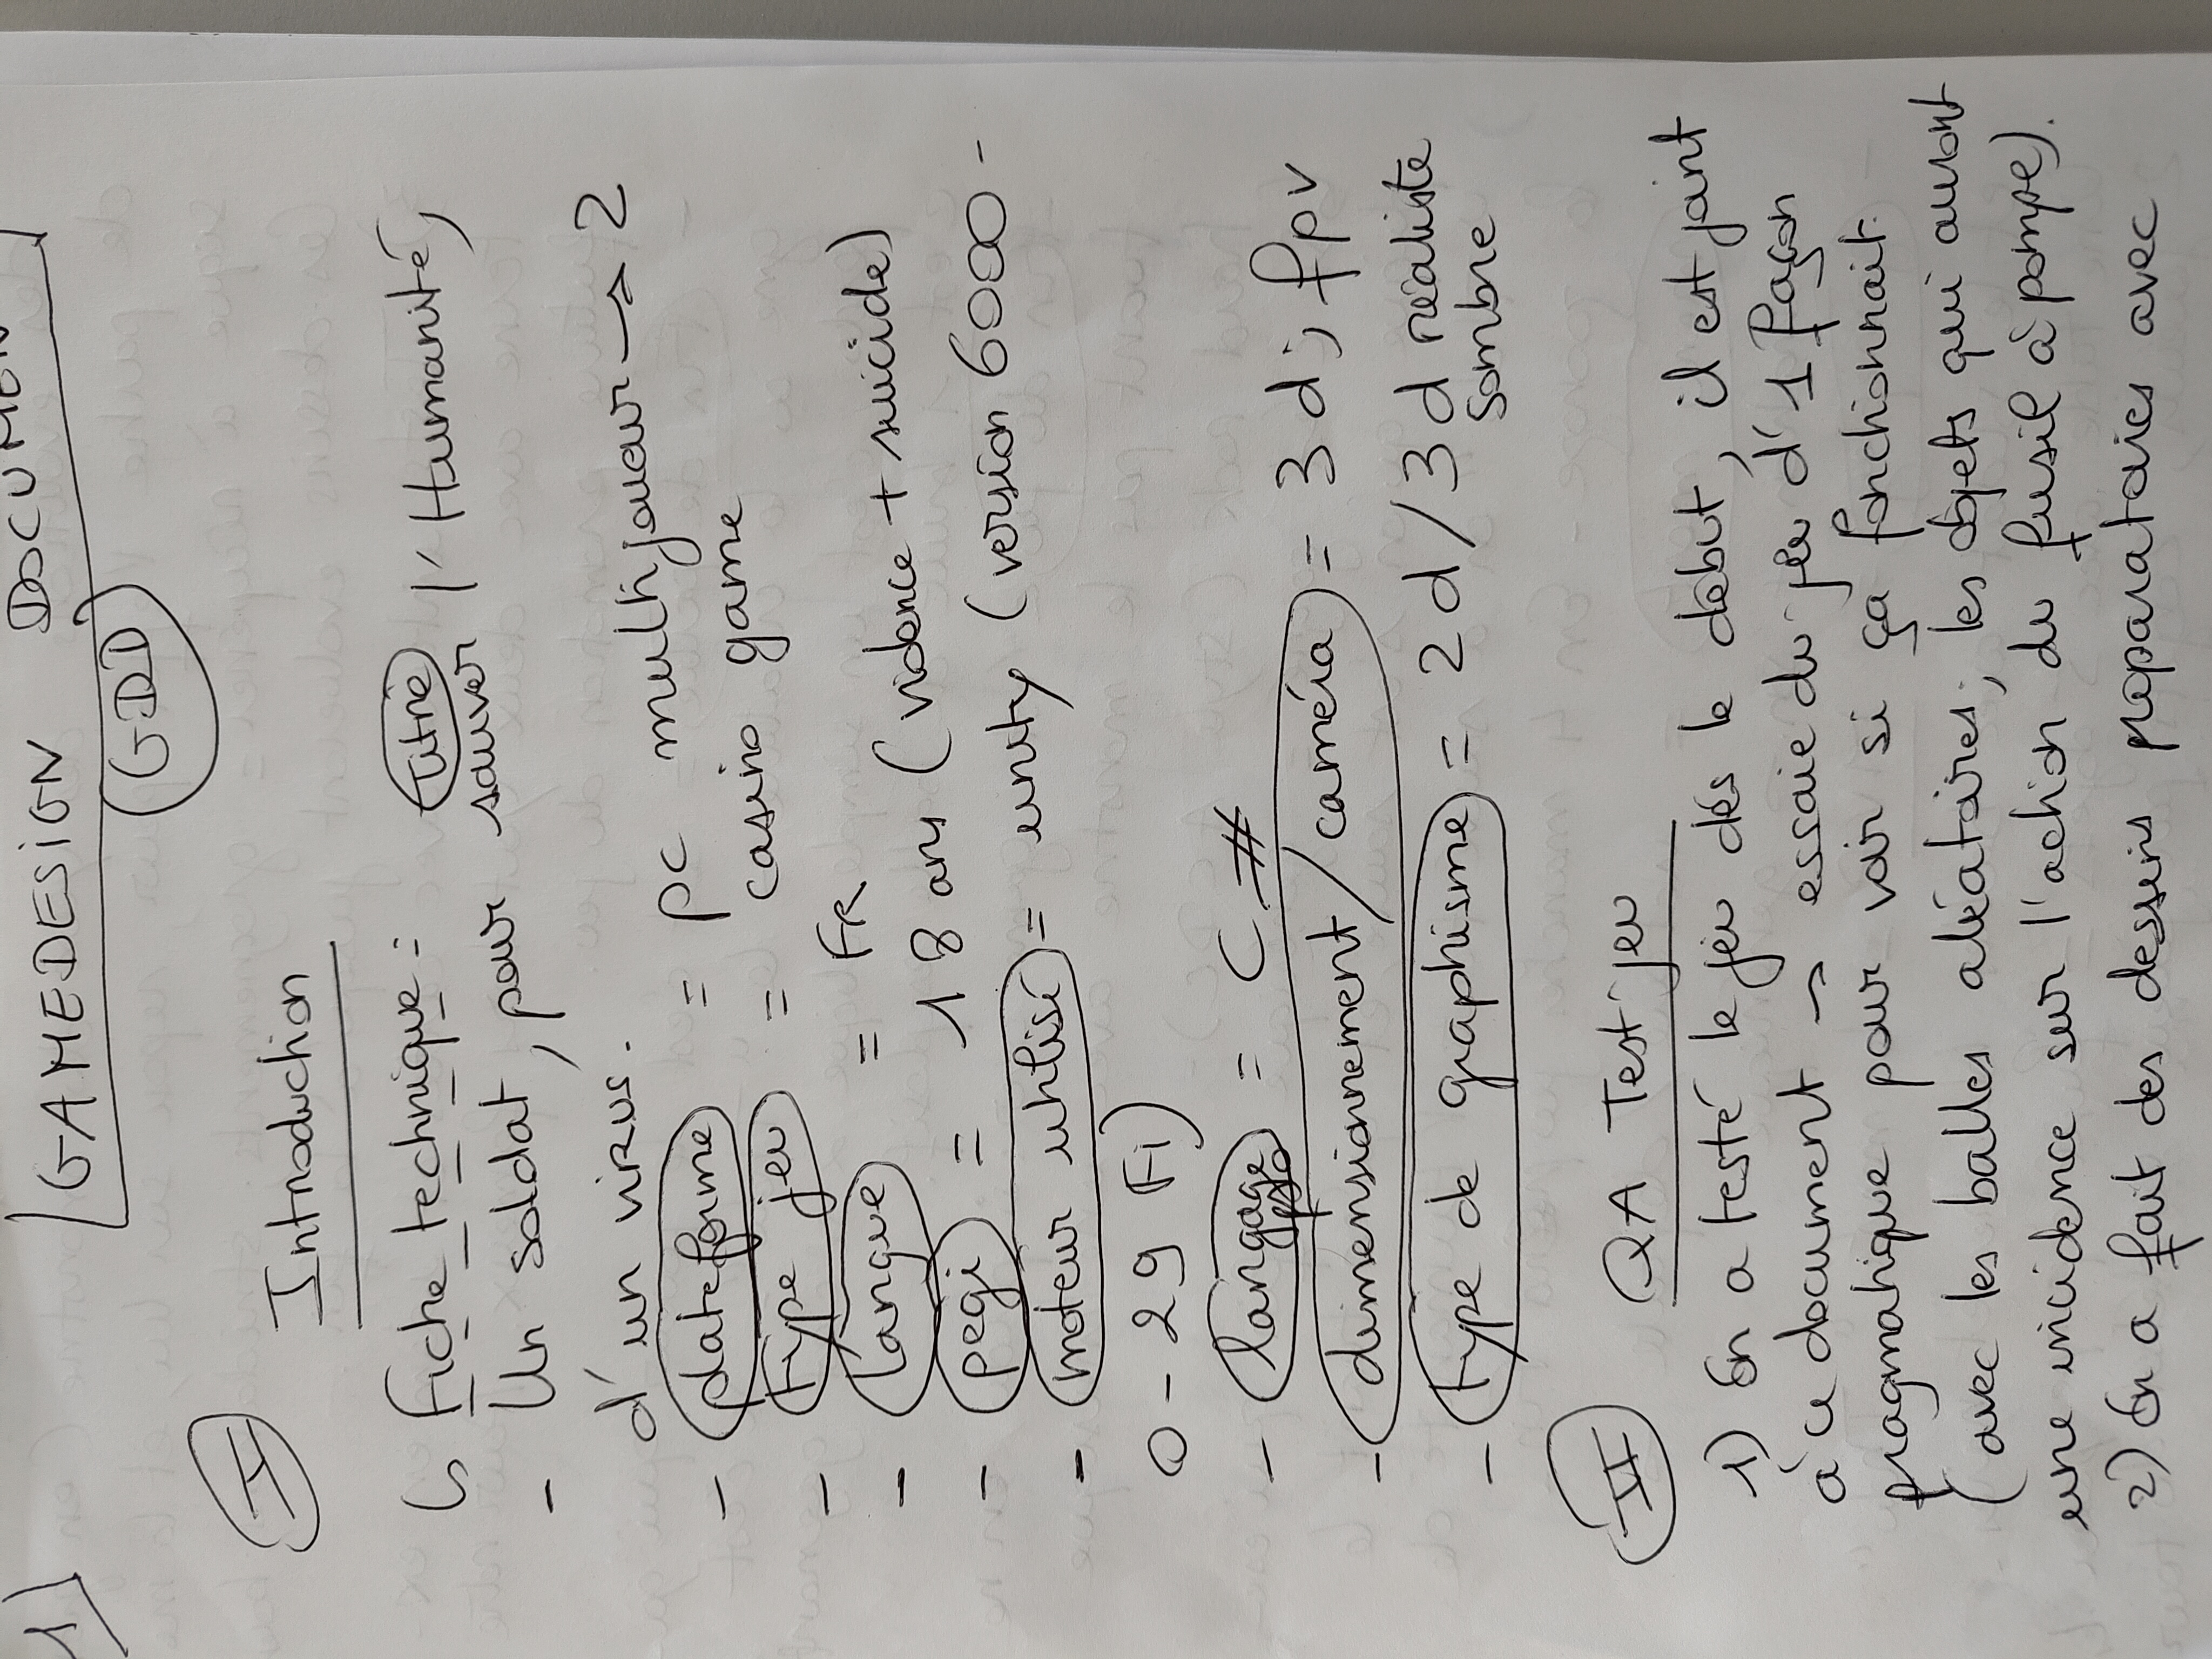 1)
GAMEDESIGN DOCUMEN
GDD
I
Introduction
↳ Fiche technique : Titre
- Un soldat, pour sauver l'Humanité,
d'un virus.
- plateforme = pc multijoueur → 2
- type jeu = casino game
- langue = FR
- pegi = 18 ans (violence + suicide)
- moteur utilisé = unity (version 6000 -
0 - 29 F1)
- langage = C#
pro
- dimensionnement / caméra = 3d ; fpv
- type de graphisme = 2d / 3d réaliste
sombre
II
QA Test jeu
1) On a testé le jeu dès le début, il est joint
à ce document → essaie du jeu d'1 façon
pragmatique pour voir si ça fonctionnait
(avec les balles aléatoires ; les objets qui auront
une incidence sur l'action du fusil à pompe).
2) On a fait des dessins préparatoires avec